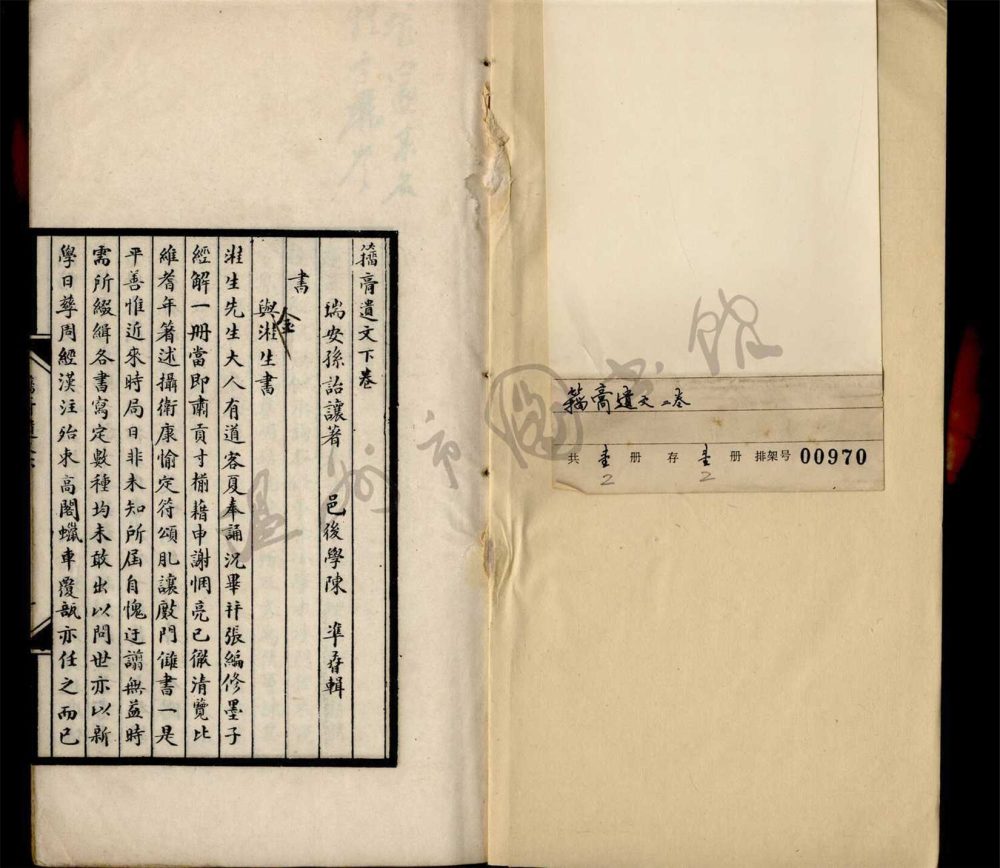 籒膏遺文下卷
瑞安孫詒讓著 邑後學陳 準輯
書
與金溎生書
溎生先生大人有道客夏奉誦況畢并張編修墨子
經解一冊當即肅貢寸楮藉申謝悃亮已徹清覽比
維耆年箸述攝衛康愉定符頌肊讓殿門讎書一是
平善惟近來時局日非未知所屆自愧迂謭無益時
需所綴緝各書寫定數種均未敢出以問世亦以新
學日孳周經漢注殆束高閣蠟車覆瓿亦任之而已
籒膏遺文 二卷
共 壹 册 存 壹 册 排架号 00970
2 2
温州市圖书館